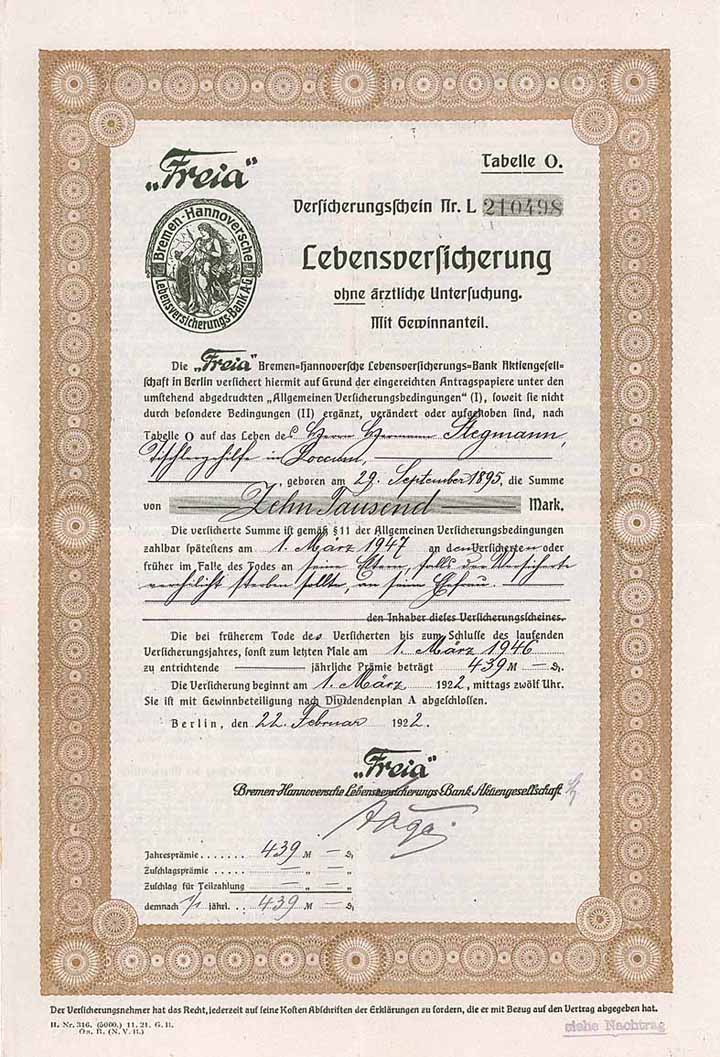 „Freia“
Tabelle O.
Bremen-Hannoversche
Lebensversicherungs-Bank A.G.
Versicherungsschein Nr. L 210498
Lebensversicherung
ohne ärztliche Untersuchung.
Mit Gewinnanteil.
Die „Freia“ Bremen=Hannoversche Lebensversicherungs=Bank Aktiengesell=
schaft in Berlin versichert hiermit auf Grund der eingereichten Antragspapiere unter den
umstehend abgedruckten „Allgemeinen Versicherungsbedingungen“ (I), soweit sie nicht
durch besondere Bedingungen (II) ergänzt, verändert oder aufgehoben sind, nach
Tabelle O auf das Leben des Herrn Hermann Stegmann,
Tischlergehilfe in Loccum,
, geboren am 29. September 1895, die Summe
von Zehn Tausend Mark.
Die versicherte Summe ist gemäß § 11 der Allgemeinen Versicherungsbedingungen
zahlbar spätestens am 1. März 1947 an den Versicherten oder
früher im Falle des Todes an seine Eltern, falls der Versicherte
verehelicht sterben sollte, an seine Ehefrau.
den Inhaber dieses Versicherungsscheines.
Die bei früherem Tode des Versicherten bis zum Schlusse des laufenden
Versicherungsjahres, sonst zum letzten Male am 1. März 1946
zu entrichtende jährliche Prämie beträgt 439 M — S,
Die Versicherung beginnt am 1. März 1922, mittags zwölf Uhr.
Sie ist mit Gewinnbeteiligung nach Dividendenplan A abgeschlossen.
Berlin, den 22. Februar 1922.
„Freia“
Bremen-Hannoversche Lebensversicherungs-Bank Aktiengesellschaft
Jahresprämie . . . . . . 439 M — S,
Zuschlagsprämie . . . . . — „ — „
Zuschlag für Teilzahlung — „ — „
demnach 1/1 jährl. . . 439 M — S,
Der Versicherungsnehmer hat das Recht, jederzeit auf seine Kosten Abschriften der Erklärungen zu fordern, die er mit Bezug auf den Vertrag abgegeben hat.
H. Nr. 316. (5000.) 11. 21. G. B.
Gn. B. (N. V. B.)
siehe Nachtrag